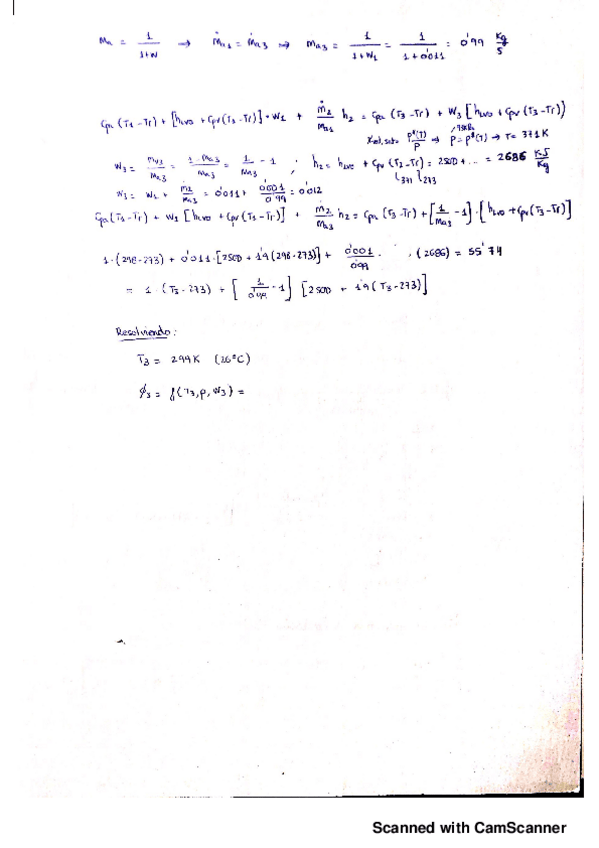 ma = 1/(1+w) → ṁa1 = ṁa3 → ma3 = 1/(1+w1) = 1/(1+0'011) = 0'99 kg/s
Cpa(T1-Tr) + [hlvo + Cpv(T1-Tr)]·w1 + ṁ2/ṁa1 h2 = Cpa(T3-Tr) + w3[hlvo + Cpv(T3-Tr)]
p*(T)/P → P = p*(T) → T = 371K
w3 = mv3/ma3 = (1-ma3)/ma3 = 1/ma3 - 1 ; h2 = hlvo + Cpv(T2-Tr) = 2500 + ... = 2686 KJ/Kg
371 273
w3 = w1 + ṁ2/ṁa3 = 0'011 + 0'001/0'99 = 0'012
Cpa(T1-Tr) + w1[hlvo + Cpv(T1-Tr)] + ṁ2/ṁa3 h2 = Cpa(T3-Tr) + [1/ma3 - 1]·[hlvo + Cpv(T3-Tr)]
1·(298-273) + 0'011·[2500 + 1'9(298-273)] + 0'001/0'99 · (2686) = 55'74
= 1·(T3-273) + [1/0'99 - 1] [2500 + 1'9(T3-273)]
Resolviendo:
T3 = 299K (26ºC)
ϕ3 = f(T3,P,W3) =
Scanned with CamScanner